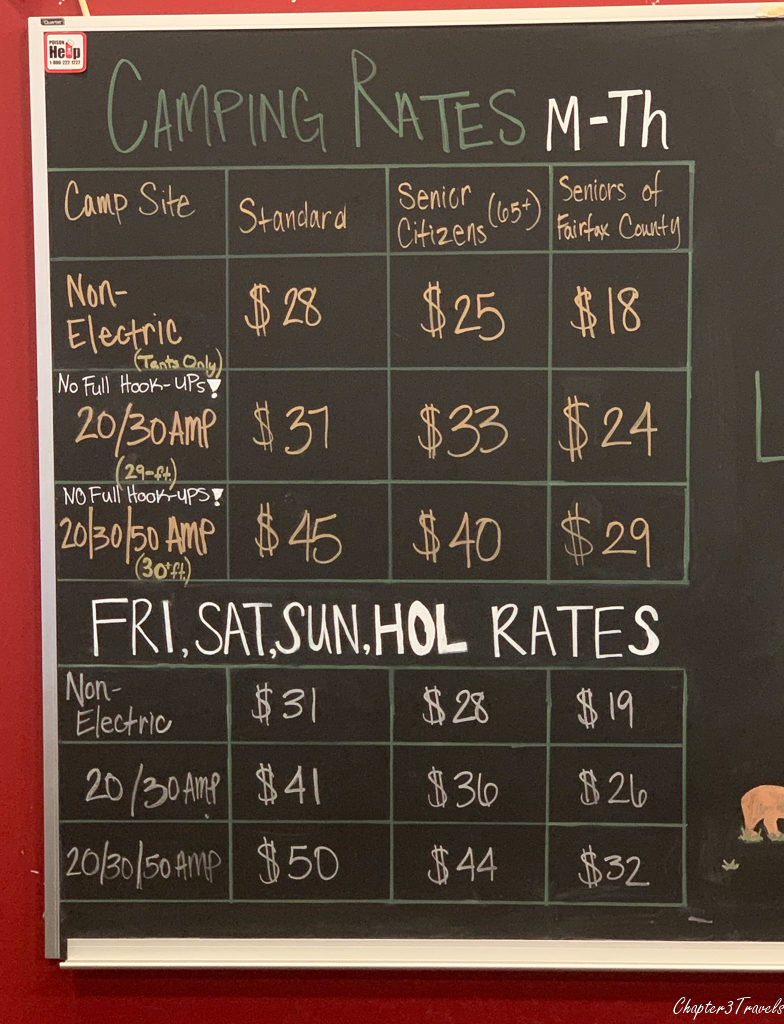 "Quartet"
POISON
Help
1-800-222-1222
CAMPING RATES M-Th
Camp Site Standard Senior Citizens (65+) Seniors of Fairfax County
Non-Electric (Tents Only) $28 $25 $18
No Full Hook-ups!
20/30 AMP (29-ft.) $37 $33 $24
NO Full Hook-ups!
20/30/50 AMP (30+ft.) $45 $40 $29
FRI, SAT, SUN, HOL RATES
Non-Electric $31 $28 $19
20/30 AMP $41 $36 $26
20/30/50 AMP $50 $44 $32
Chapter3Travels